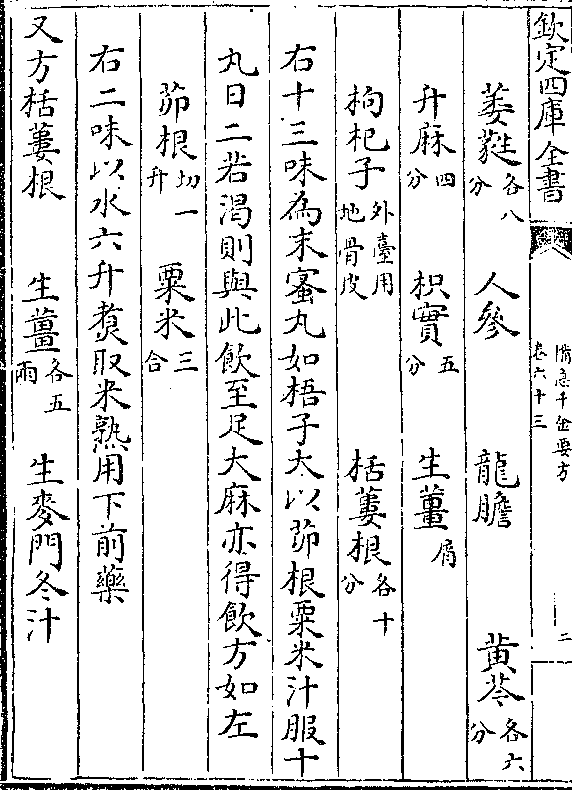 欽定四庫全書
備急千金要方
卷六十三
二
萎蕤各八分 人參 龍膽 黄芩各六分
升麻四分 枳實五分 生薑屑
枸杞子外臺用地骨皮 栝蔞根各十分
右十三味為末蜜丸如梧子大以茆根粟米汁服十
丸日二若渴則與此飲至足大麻亦得飲方如左
茆根切一升 粟米三合
右二味以水六升煑取米熟用下前藥
又方栝蔞根 生薑各五兩 生麥門冬汁